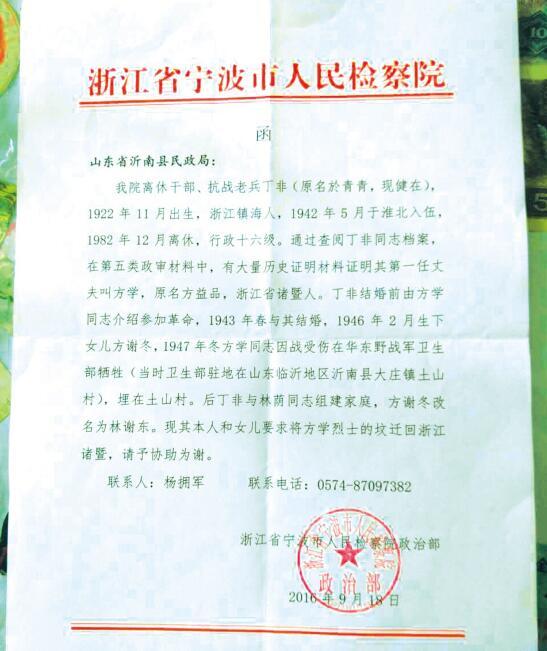 浙江省宁波市人民检察院
函
山东省沂南县民政局：
我院离休干部、抗战老兵丁非（原名於青青，现健在），
1922 年 11 月出生，浙江镇海人，1942 年 5 月于淮北入伍，
1982 年 12 月离休，行政十六级。通过查阅丁非同志档案，
在第五类政审材料中，有大量历史证明材料证明其第一任丈
夫叫方学，原名方益品，浙江省诸暨人。丁非结婚前由方学
同志介绍参加革命，1943 年春与其结婚，1946 年 2 月生下
女儿方谢冬，1947 年冬方学同志因战受伤在华东野战军卫生
部牺牲（当时卫生部驻地在山东临沂地区沂南县大庄镇土山
村），埋在土山村。后丁非与林荫同志组建家庭，方谢冬改
名为林谢东。现其本人和女儿要求将方学烈士的坟迁回浙江
诸暨，请予协助为谢。
联系人：杨拥军 联系电话：0574-87097382
浙江省宁波市人民检察院政治部
浙江省宁波市人民检察院
政治部
2016 年 9 月 18 日